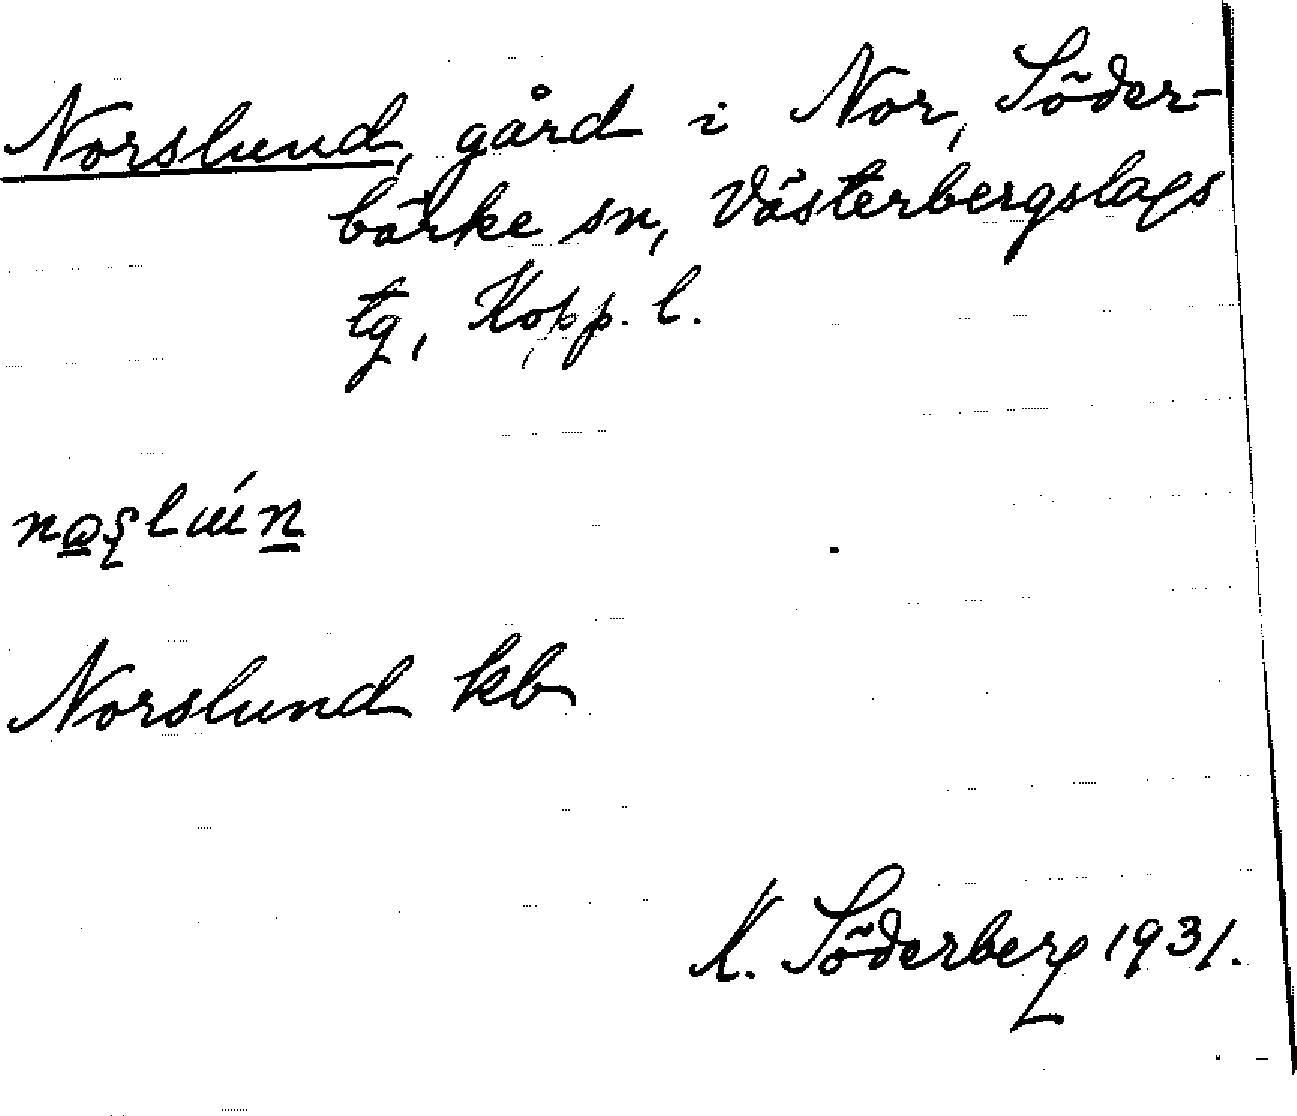 Norslund, gård i Nor, Söder-
bärke sn, Västerbergslags
tg, Kopp. l.
Norslund kb
K. Söderberg 1931.